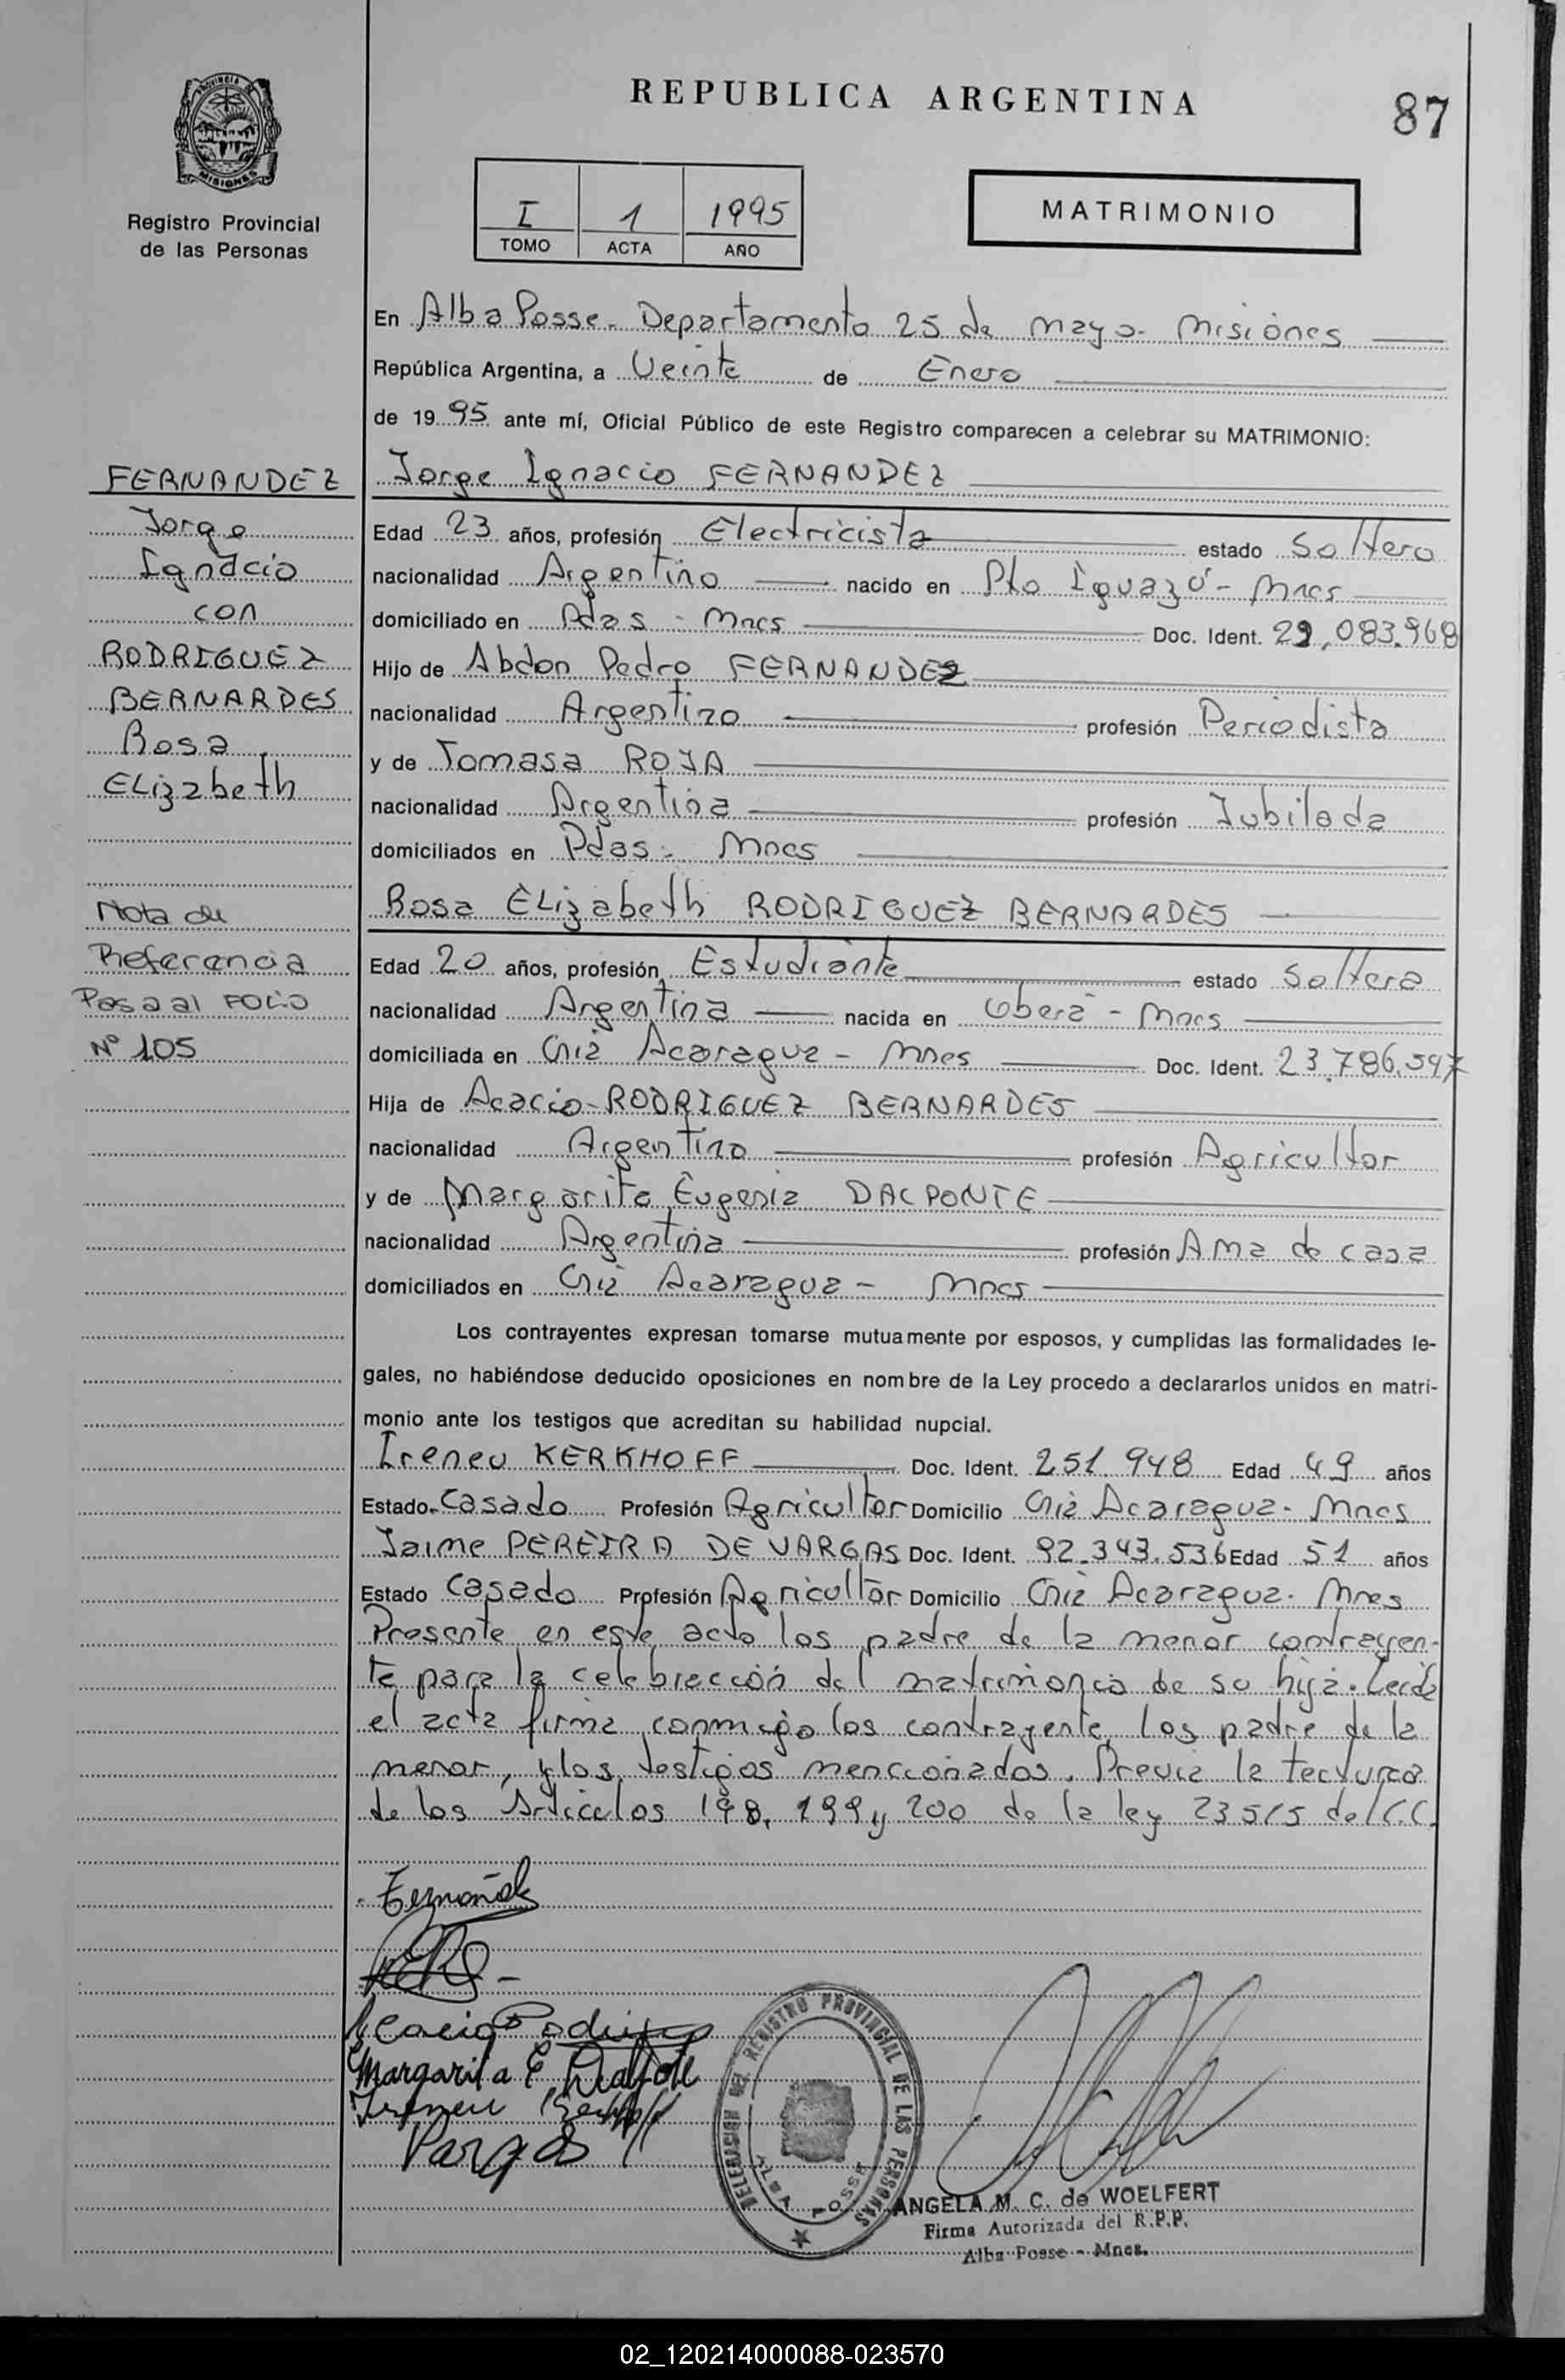 REPUBLICA ARGENTINA
87
PROVINCIA DE
MISIONES
Registro Provincial
de las Personas
I 1 1995
TOMO ACTA AÑO
MATRIMONIO
En Alba Posse - Departamento 25 de mayo - Misiones
República Argentina, a Veinte de Enero
de 1995 ante mí, Oficial Público de este Registro comparecen a celebrar su MATRIMONIO:
FERNANDEZ
Jorge
Ignacio
con
RODRIGUEZ
BERNARDES
Rosa
ELizabeth
Nota de
Referencia
Pasa al FOLIO
Nº 105
Jorge Ignacio FERNANDEZ
Edad 23 años, profesión Electricista estado Soltero
nacionalidad Argentino nacido en Pto Iguazú - Mnes
domiciliado en Pdas - Mnes Doc. Ident. 29.083.968
Hijo de Abdon Pedro FERNANDEZ
nacionalidad Argentino profesión Periodista
y de Tomasa ROJA
nacionalidad Argentina profesión Jubilada
domiciliados en Pdas - Mnes
Rosa ELizabeth RODRIGUEZ BERNARDES
Edad 20 años, profesión Estudiante estado Soltera
nacionalidad Argentina nacida en Oberá - Mnes
domiciliada en Cnia Acaragua - Mnes Doc. Ident. 23.786.547
Hija de Acacio RODRIGUEZ BERNARDES
nacionalidad Argentino profesión Agricultor
y de Margarita Eugenia DALPONTE
nacionalidad Argentina profesión Ama de casa
domiciliados en Cnia Acaragua - Mnes
Los contrayentes expresan tomarse mutuamente por esposos, y cumplidas las formalidades le-
gales, no habiéndose deducido oposiciones en nombre de la Ley procedo a declararlos unidos en matri-
monio ante los testigos que acreditan su habilidad nupcial.
Ireneu KERKHOFF Doc. Ident. 251.948 Edad 49 años
Estado Casado Profesión Agricultor Domicilio Cnia Acaragua - Mnes
Jaime PEREIRA DE VARGAS Doc. Ident. 92.343.536 Edad 51 años
Estado Casado Profesión Agricultor Domicilio Cnia Acaragua - Mnes
Presente en este acto los padre de la menor contrayen-
te para la celebracción del matrimonio de su hija. Leida
el acta firma conmigo los contrayente, los padre de la
menor, y los testigos menccionados. Previa la lectura
de los Articulos 198, 199 y 200 de la ley 23515 del C.C.
Acacio Rodriguez
Margarita E. Dalponte
Ireneu Kerkhoff
Vargas
DELEGACION DEL REGISTRO PROVINCIAL DE LAS PERSONAS
ALBA POSSE
ANGELA M. C. de WOELFERT
Firma Autorizada del R.P.P.
Alba Posse - Mnes.
02_120214000088-023570